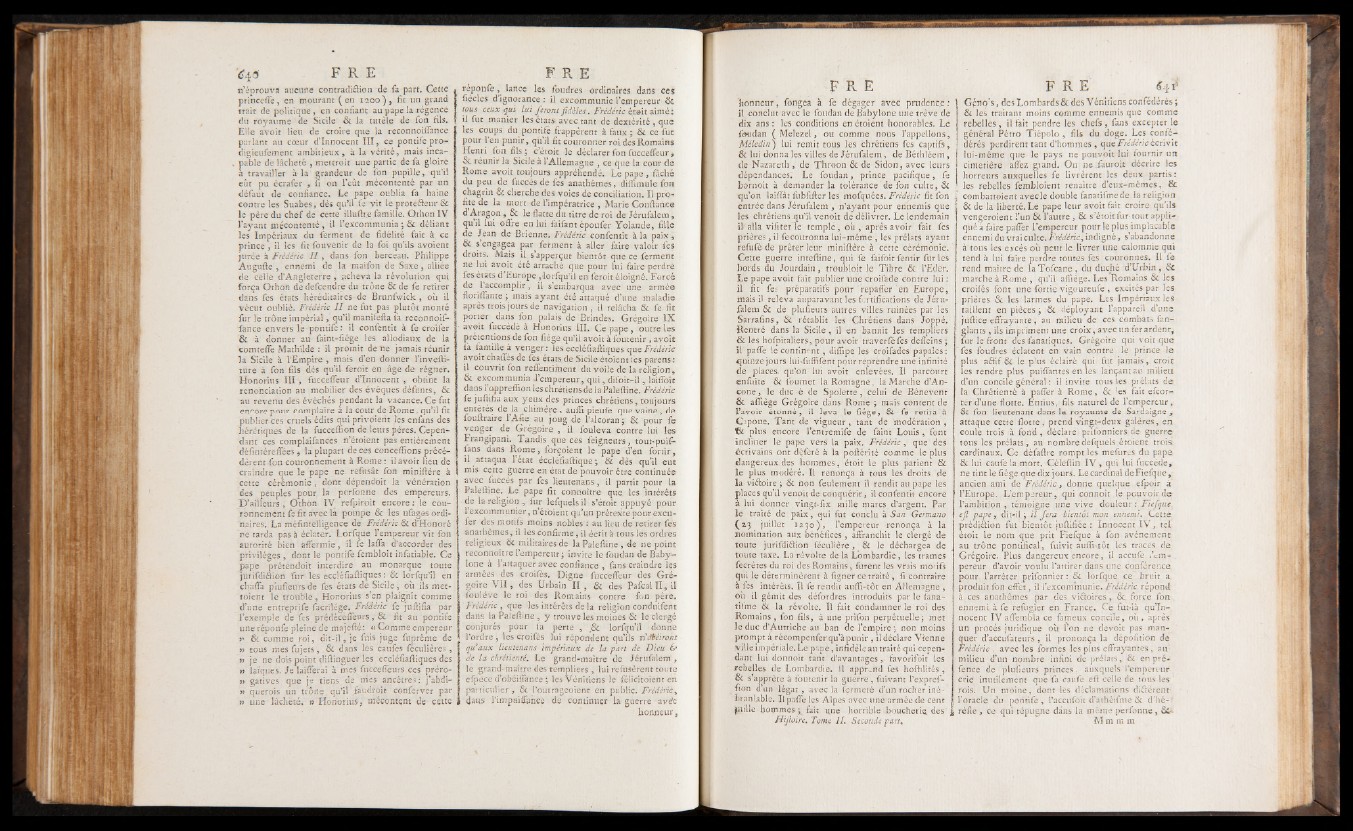 640 F R E
n'éprouva aucune contradiction de ſa part. Cette
princeſſe, en mourant (en 1200), fit un grand
trait de politique, en confiant au pape la régence
du royaume de Sicile & la tutèle de ſon fils.
Elle avoit lieu de croire que la reconnoiſſance
parlant au cœur d'Innocent III, ce pontife pro-
digieuſement ambitieux, à la vérité, mais inca-
pable de lâcheté, mettroit une partie de ſa gloire
à travailler à la grandeur de ſon pupille, qu'il
eût pu écraſer, ſi on l'eût mécontenté par un
défaut de confiance. Le pape oublia ſa haine
contre les Suabes, dès qu'il ſe vit le protecteur &
le père du chef de cette illuſtre famille. Othon IV
l'ayant mécontenté, il l'excommunia; & déliant
les Impériaux du ſerment de fidélité fait à ce
prince, il les fit ſouvenir de la foi qu'ils avoient
jurée à Frédéric II, dans ſon berceau. Philippe
Auguſte, ennemi de la maiſon de Saxe, alliée
de celle d'Angleterre, acheva la révolution qui
força Othon de deſcendre du trône & de ſe retirer
dans ſes états héréditaires de Brunſwick, où il
vécut oublié. Frédéric II ne fut pas plutôt monté
ſur le trône impérial, qu'il manifeſta ſa reconnoiſ-
ſance envers le pontife: il conſentit à ſe croiſer
& à donner au ſaint-ſiège les allodiaux de la
comteſſe Mathilde: il promit de ne jamais réunir
la Sicile à l'Empire, mais d'en donner l'inveſti-
ture à ſon fils dès qu'il ſeroit en âge de régner.
Honorius III, ſucceſſeur d'Innocent, obtint la
renonciation au mobilier des évêques défunts, &
au revenu des évêchés pendant la vacance. Ce fut
encore pour complaire à la cour de Rome, qu'il fit
publier ces cruels édits qui privoient les enfans des
hérétiques de la ſucceſſion de leurs pères. Cepen-
dant ces complaiſances n'étoient pas entiérement
déſintéreſſées, la plupart de ces conceſſions précé-
dèrent ſon couronnement à Rome: il avoit lieu de
craindre que le pape ne refusât ſon miniſtère à
cette cérémonie, dont dépendoit la vénération
des peuples pour la perſonne des empereurs.
D'ailleurs, Othon IV reſpiroit encore: le cou-
ronnement ſe fit avec la pompe & les uſages ordi-
naires. La méſintelligence de Frédéric & d'Honoré
ne tarda pas à éclater. Lorſque l'empereur vit ſon
autorité bien affermie, il ſe laſſa d'accorder des
privilèges, dont le pontife ſembloit inſatiable. Ce
pape prétendoit interdire au monarque toute
juriſdiction ſur les eccléſiaſtiques: & lorſqu'il en
chaſſa pluſieurs de ſes états de Sicile, où ils met-
toient le trouble, Honorius s'en plaignit comme
d'une entrepriſe ſacrilège. Frédéric ſe juſtifia par
l'exemple de ſes prédéceſſeurs, & fit au pontife
une réponſe pleine de majeſté: « Comme empereur
» & comme roi, dit-il, je ſuis juge ſuprême de
» tous mes ſujets, & dans les cauſes ſéculières,
» je ne dois point diſtinguer les eccléſiaſtiques des
» laïques. Je laiſſerai à mes ſucceſſeurs ces préro-
» gatives que je tiens de mes ancêtres: j'abdi-
» querois un trône qu'il faudroit conſerver par
» une lâcheté. » Honorius, mécontent de cette
F R E
réponſe, lance les foudres ordinaires dans ces
ſiècles d'ignorance: il excommunie l'empereur &
tous ceux qui lui ſeront fidèles. Frédéric étoit aimé:
il ſut manier les états avec tant de dextérité, que
les coups du pontife frappèrent à faux; & ce fut
pour l'en punir, qu'il fit couronner roi des Romains
Henri ſon fils; c'étoit le déclarer ſon ſucceſſeur,
& réunir la Sicile à l'Allemagne, ce que la cour de
Rome avoit toujours appréhendé. Le pape, fâché
du peu de ſuccès de ſes anathêmes, diſſimule ſon
chagrin & cherche des voies de conciliation. Il pro-
fite de la mort de l'impératrice, Marie Conſtance
d'Aragon, & le flatte du titre de roi de Jéruſalem,
qu'il lui offre en lui faiſant épouſer Yolande, fille
de Jean de Brienne. Frédéric conſentit à la paix,
& s'engagea par ſerment à aller faire valoir ſes
droits. Mais il s'apperçut bientôt que ce ſerment
ne lui avoit été arraché que pour lui faire perdre
ſes états d'Europe, lorſqu'il en ſeroit éloigné. Forcé
de l'accomplir, il s'embarqua avec une armée
floriſſante; mais ayant été attaqué d'une maladie
après trois jours de navigation, il relâcha & ſe fit
porter dans ſon palais de Brindes. Grégoire IX
avoit ſuccédé à Honorius III. Ce pape, outre les
prétentions de ſon ſiège qu'il avoit à ſoutenir, avoit
ſa famille à venger: les eccléſiaſtiques que Frédéric
avoit chaſſés de ſes états de Sicile étoient ſes parens:
il couvrit ſon reſſentiment du voile de la religion,
& excommunia l'empereur, qui, diſoit-il, laiſſoit
dans l'oppreſſion les chrétiens de la Paleſtine. Frédéric
ſe juſtifia aux yeux des princes chrétiens, toujours
entêtés de la chimère, auſſi pieuſe que vaine, de
ſouſtraire l'Aſie au joug de l'alcoran; & pour ſe
venger de Grégoire, il ſouleva contre lui les
Frangipani. Tandis que ces ſeigneurs, tout-puiſ-
ſans dans Rome, forçoient le pape d'en ſortir,
il attaqua l'état eccléſiaſtique; & dès qu'il eut
mis cette guerre en état de pouvoir être continuée
avec ſuccès par ſes lieutenans, il partit pour la
Paleſtine. Le pape fit connoître que les intérêts
de la religion, ſur leſquels il s'étoit appuyé pour
l'excommunier, n'étoient qu'un prétexte pour excu-
ſer des motifs moins nobles: au lieu de retirer ſes
anathêmes, il les confirme, il écrit à tous les ordres
religieux & militaires de la Paleſtine, de ne point
reconnoître l'empereur; invite le ſoudan de Baby-
lone à l'attaquer avec confiance, ſans craindre les
armées des croiſés. Digne ſucceſſeur des Gré-
goire VII, des Urbain II, & des Paſcal II, il
ſoulève le roi des Romains contre ſon père.
Frédéric, que les intérêts de la religion conduiſent
dans la Paleſtine, y trouve les moines & le clergé
conjurés pour ſa perte, & lorſqu'il donne
l'ordre, les croiſés lui répondent qu'ils n'obéiront
qu'aux lieutenans impériaux de la part de Dieu &
de la chrétienté. Le grand-maître de Jéruſalem,
le grand-maître des templiers, lui refuſèrent toute
eſpèce d'obéiſſance; les Vénitiens le félicitoient en
particulier, & l'outrageoient en public. Frédéric,
dans l'impuiſſance de continuer la guerre avec
honneur,
F R E
honneur, ſongea à ſe dégager avec prudence:
il conclut avec le ſoudan de Babylone une trève de
dix ans: les conditions en étoient honorables. Le
ſoudan (Melezel, ou comme nous l'appellons,
Méledin) lui remit tous les chrétiens ſes captifs,
& lui donna les villes de Jéruſalem, de Béthléem,
de Nazareth, de Thoron & de Sidon, avec leurs
dépendances. Le ſoudan, prince pacifique, ſe
bornoit à demander la tolérance de ſon culte, &
qu'on laiſſât ſubſiſter les moſquées. Frédéric fit ſon
entrée dans Jéruſalem, n'ayant pour ennemis que
les chrétiens qu'il venoit de délivrer. Le lendemain
il alla viſiter le temple, où, après avoir fait ſes
prières, il ſe couronna lui-même, les prélats ayant
refuſé de prêter leur miniſtère à cette cérémonie.
Cette guerre inteſtine, qui ſe faiſoit ſentir ſur les
bords du Jourdain, troubloit le Tibre & l'Eder.
Le pape avoit fait publier une croiſade contre lui:
il fit ſes préparatifs pour repaſſer en Europe,
mais il releva auparavant les fortifications de Jéru-
ſalem & de pluſieurs autres villes ruinées par les
Sarraſins, & rétablit les Chrétiens dans Joppé.
Rentré dans la Sicile, il en bannit les templiers
& les hoſpitaliers, pour avoir traverſé ſes deſſeins;
il paſſe le continent, diſſipe les croiſades papales:
quinze jours lui ſuffiſent pour reprendre une infinité
de places qu'on lui avoit enlevées. Il parcourt
enſuite & ſoumet la Romagne, la Marche d'An-
cone, le duché de Spolette, celui de Bénevent
& aſſiège Grégoire dans Rome; mais content de
l'avoir étonné, il leva le ſiège, & ſe retira à
Capoue. Tant de vigueur, tant de modération,
& plus encore l'entremiſe de ſaint Louis, font
incliner le pape vers la paix. Frédéric, que des
écrivains ont déféré à la poſtérité comme le plus
dangereux des hommes, étoit le plus patient &
le plus modéré. Il renonça à tous les droits de
la victoire; & non ſeulement il rendit au pape les
places qu'il venoit de conquérir, il conſentit encore
à lui donner vingt-ſix mille marcs d'argent. Par
le traité de paix, qui fut conclu à San Germano
(23 juillet 1230), l'empereur renonça à la
nomination aux bénéfices, affranchit le clergé de
toute juriſdiction ſéculière, & le déchargea de
toute taxe. La révolte de la Lombardie, les trames
ſecrètes du roi des Romains, furent les vrais motifs
qui le déterminèrent à ſigner ce traité, ſi contraire
à ſes intérêts. Il ſe rendit auſſi-tôt en Allemagne,
où il gémit des déſordres introduits par le fana-
tiſme & la révolte. Il fait condamner le roi des
Romains, ſon fils, à une priſon perpétuelle; met
le duc d'Autriche au ban de l'empire; non moins
prompt à récompenſer qu'à punir, il déclare Vienne
ville impériale. Le pape, infidèle au traité qui cepen-
dant lui donnoit tant d'avantages, favoriſoit les
rebelles de Lombardie. Il apprend ſes hoſtilités,
& s'apprête à ſoutenir la guerre, ſuivant l'expreſ-
ſion d'un légat, avec la fermeté d'un rocher iné-
branlable. Il paſſe les Alpes avec une armée de cent
mille hommes; fait une horrible boucherie des
Hiſtoire. Tome II. Seconde part.
F R E 641
Génois, des Lombards & des Vénitiens confédérés;
& les traitant moins comme ennemis que comme
rebelles, il fait pendre les chefs, ſans excepter le
général Pétro Tiépolo, fils du doge. Les confé-
dérés perdirent tant d'hommes, que Frédéric écrivit
lui-même que le pays ne pouvoit lui fournir un
cimetière aſſez grand. On ne ſauroit décrire les
horreurs auxquelles ſe livrèrent les deux partis:
les rebelles ſembloient renaître d'eux-mêmes, &
combattoient avec le double fanatiſme de la religion
& de la liberté. Le pape leur avoit fait croire qu'ils
vengeroient l'un & l'autre, & s'étoit ſur-tout appli-
qué à faire paſſer l'empereur pour le plus implacable
ennemi du vrai culte. Frédéric, indigné, s'abandonne
à tous les excès où peut ſe livrer une calomnie qui
tend à lui faire perdre toutes ſes couronnes. Il ſe
rend maître de la Toſcane, du duché d'Urbin, &
marche à Rome, qu'il aſſiège. Les Romains & les
croiſés font une ſortie vigoureuſe, excités par les
prières & les larmes du pape. Les Impériaux les
taillent en pièces; & déployant l'appareil d'une
juſtice effrayante, au milieu de ces combats ſan-
glans, ils impriment une croix, avec un fer ardent,
ſur le front des fanatiques. Grégoire qui voit que
ſes foudres éclatent en vain contre le prince le
plus actif & le plus éclairé qui fut jamais, croit
les rendre plus puiſſantes en les lançant au milieu
d'un concile général: il invite tous les prélats de
la Chrétienté à paſſer à Rome, & les fait eſcor-
ter d'une flotte. Entius, fils naturel de l'empereur,
& ſon lieutenant dans le royaume de Sardaigne,
attaque cette flotte, prend vingt-deux galères, en
coule trois à fond, déclare priſonniers de guerre
tous les prélats, au nombre deſquels étoient trois
cardinaux. Ce déſaſtre rompt les meſures du pape,
& lui cauſe la mort. Céleſtin IV, qui lui ſuccède,
ne tint le ſiège que dix jours. Le cardinal de Fieſque,
ancien ami de Frédéric, donne quelque eſpoir à
l'Europe. L'empereur, qui connoît le pouvoir de
l'ambition, témoigne une vive douleur: Fieſque
eſt pape, dit-il, il ſera bientôt mon ennemi. Cette
prédiction fut bientôt juſtifiée: Innocent IV, tel
étoit le nom que prit Fieſque à ſon avènement
au trône pontifical, ſuivit auſſi-tôt les traces de
Grégoire. Plus dangereux encore, il accuſe l'em-
pereur d'avoir voulu l'attirer dans une conférence
pour l'arrêter priſonnier: & lorſque ce bruit a
produit ſon effet, il l'excommunie. Frédéric répond
à ces anathêmes par des victoires, & force ſon
ennemi à ſe réfugier en France. Ce fut-là qu'In-
nocent IV aſſembla ce fameux concile, où, après
un procès juridique où l'on ne devoit pas man-
quer d'accuſateurs, il prononça la dépoſition de
Frédéric avec les formes les plus effrayantes, au
milieu d'un nombre infini de prélats, & en pré-
ſence de pluſieurs princes, auxquels l'empereur
crie inutilement que ſa cauſe eſt celle de tous les
rois. Un moine, dont les déclamations dictèrent
l'oracle du pontife, l'accuſoit d'athéiſme & d'hé-
réſie, ce qui répugne dans la même perſonne, &
M m m m